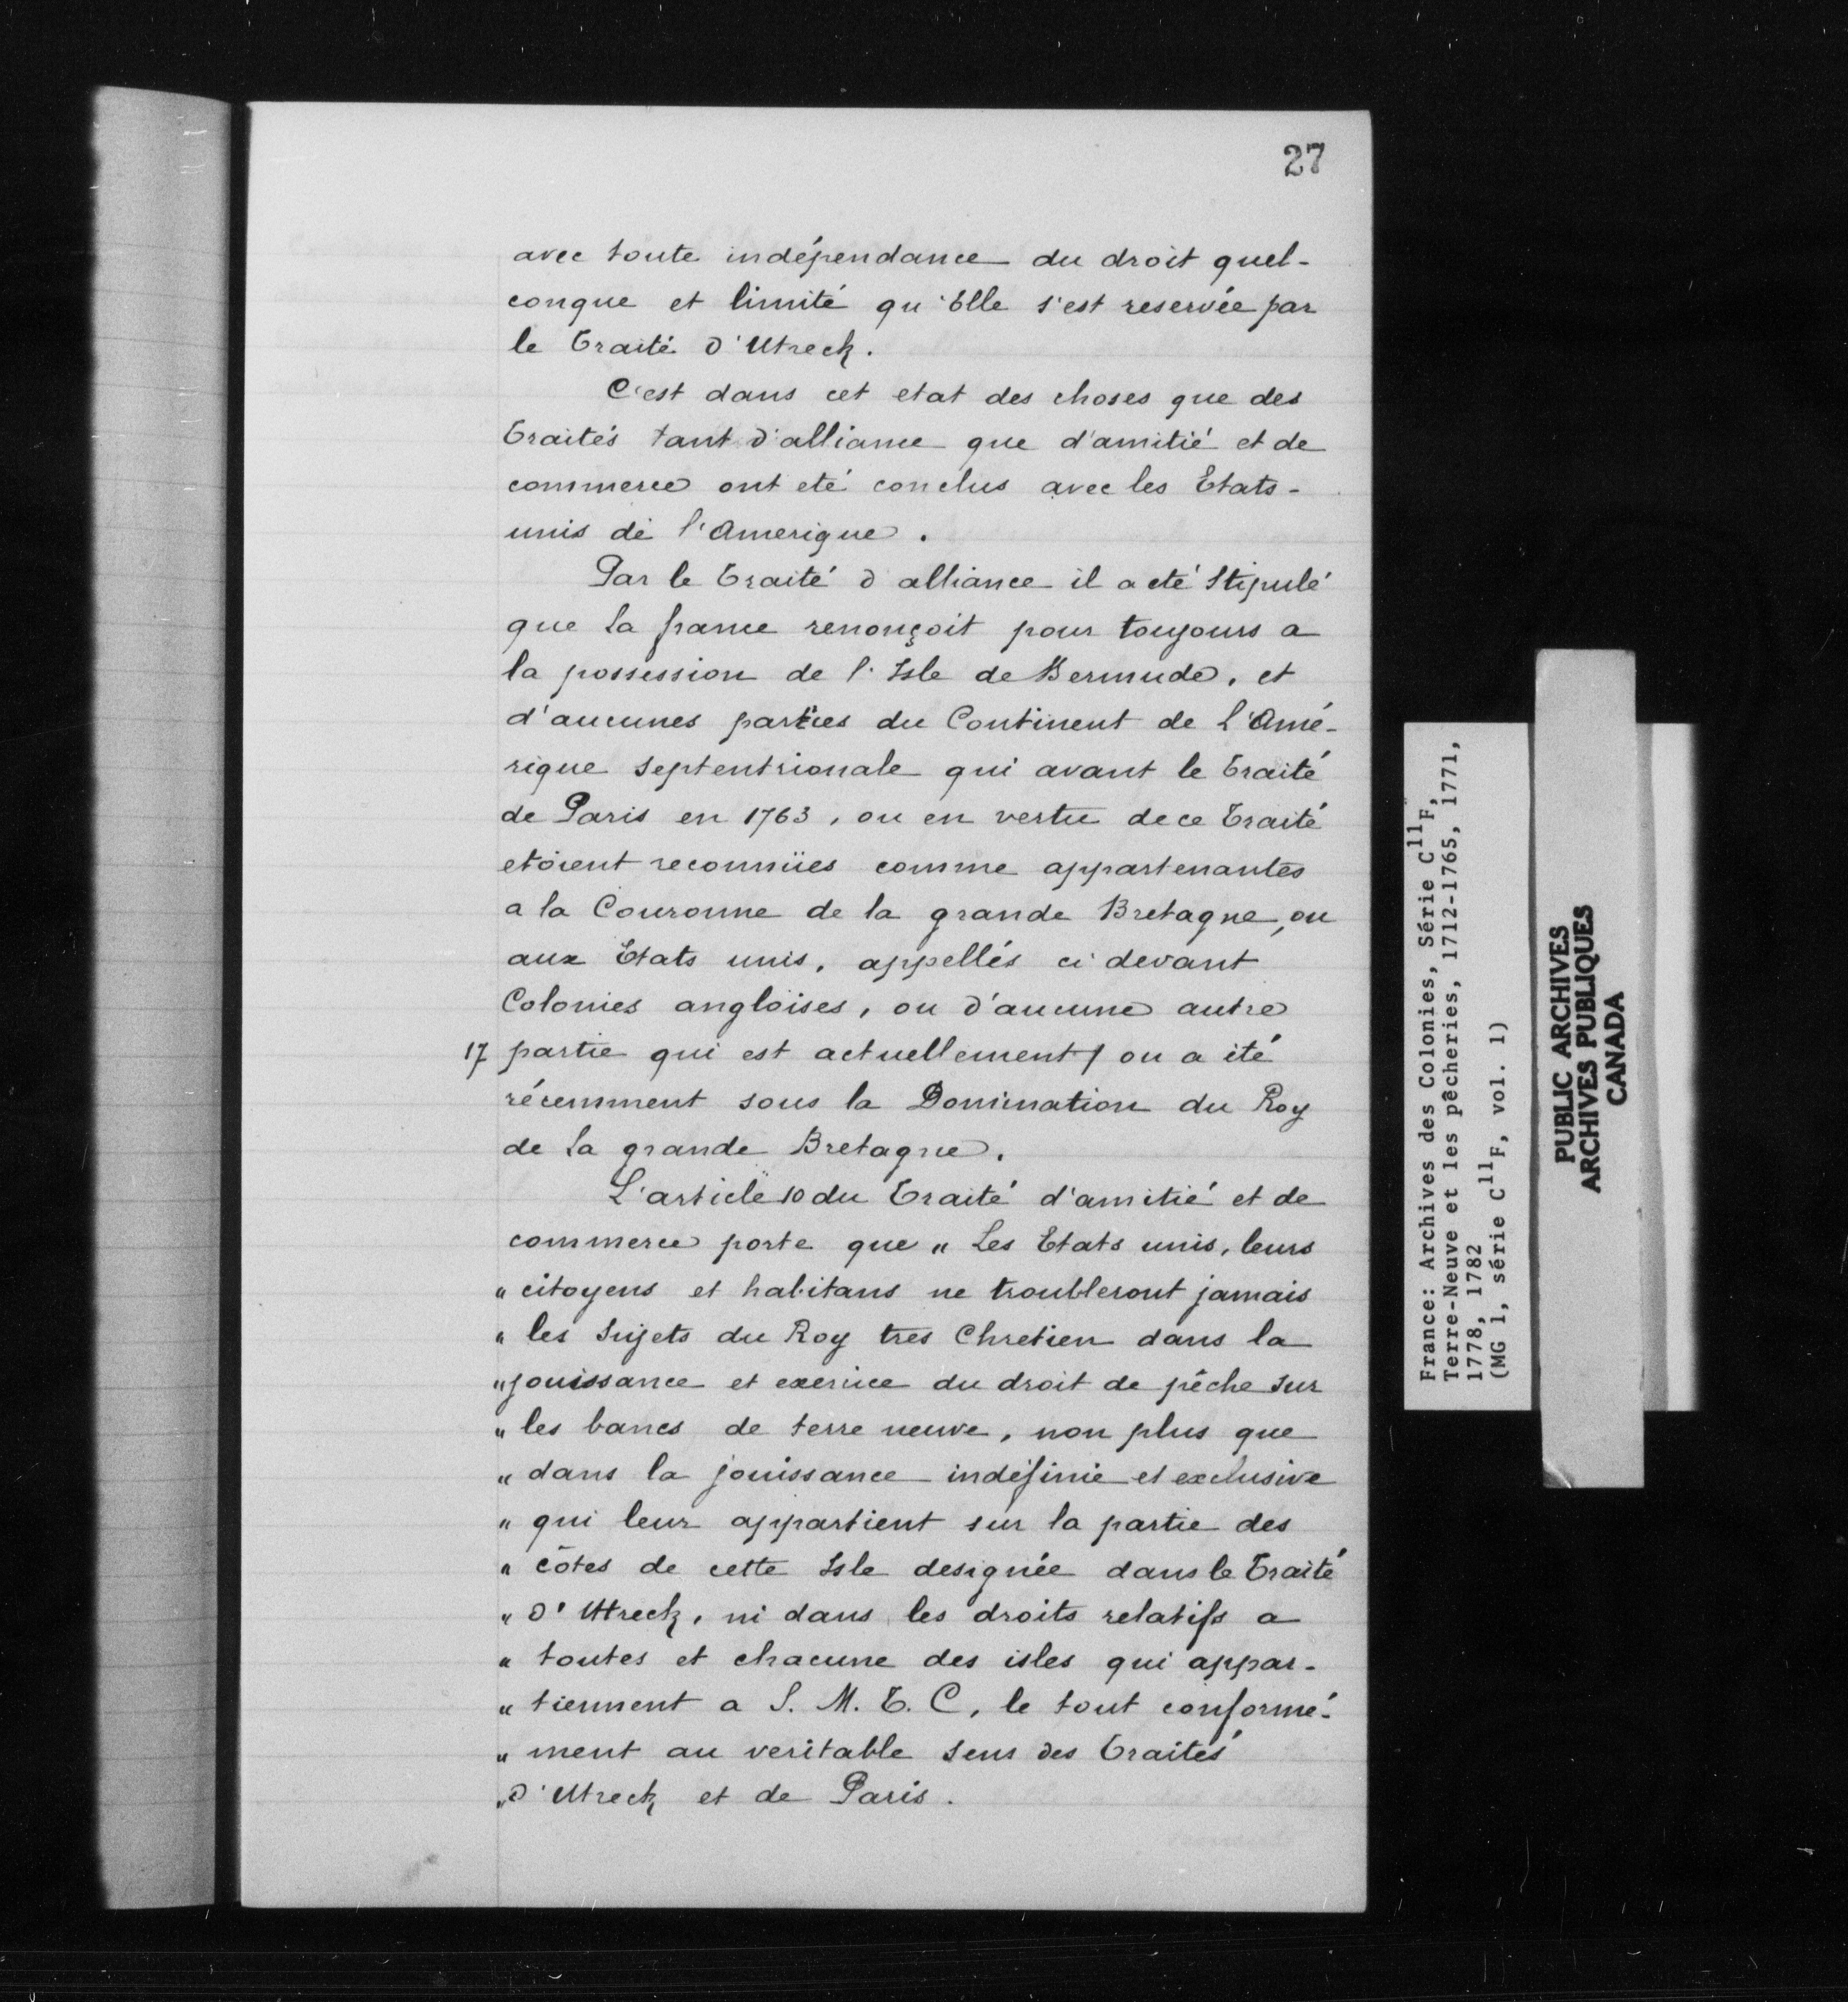 27
avec toute indépendance du droit quel-
conque et limité qu'Elle s'est reservée par
le Traité d'Utreck.
C'est dans cet etat des choses que des
Traités tant d'alliance que d'amitié et de
commerce ont eté conclus avec les Etats-
unis de l'Amerique.
Par le Traité d'alliance il a eté stipulé
que la france renonçoit pour toujours a
la possession de l'Isle de Bermude, et
d'aucunes parties du Continent de l'Amé-
rique septentrionale qui avant le traité
de Paris en 1763, ou en vertu de ce Traité
etoient reconnües comme appartenantes
a la Couronne de la grande Bretagne, ou
aux Etats unis, appellés ci devant
Colonies angloises, ou d'aucune autre
17 partie qui est actuellement / ou a été
récemment sous la Domination du Roy
de la grande Bretagne.
L'article 10 du Traité d'amitié et de
commerce porte que „ Les Etats unis, leurs
„ citoyens et habitans ne troubleront jamais
„ les Sujets du Roy tres Chretien dans la
„ jouissance et exercice du droit de pêche sur
„ les bancs de terre neuve, non plus que
„ dans la jouissance indéfinie et exclusive
„ qui leur appartient sur la partie des
„ côtes de cette Isle designée dans le Traité
„ D'Utreck, ni dans les droits relatifs a
„ toutes et chacune des isles qui appar-
„ tiennent a S. M. T. C, le tout conformé-
„ ment au veritable sens des Traités
„ D'Utreck et de Paris.
France: Archives des Colonies, Série C11F,
Terre-Neuve et les pêcheries, 1712-1765, 1771,
1778, 1782
(MG 1, série C11F, vol. 1)
PUBLIC ARCHIVES
ARCHIVES PUBLIQUES
CANADA